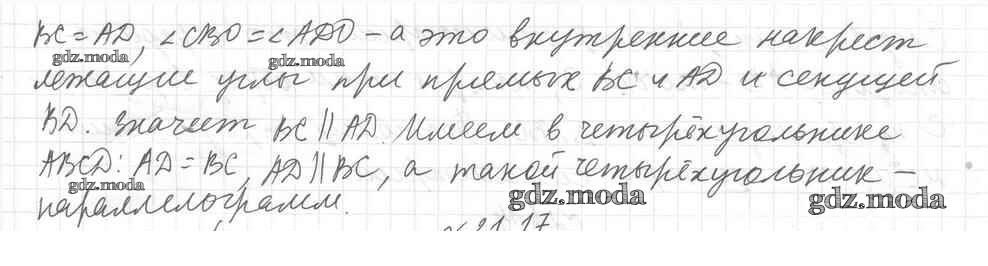 BC = AD, ∠CBO = ∠ADO – а это внутренние накрест
gdz.moda
gdz.moda
лежащие углы при прямых BC и AD и секущей
BD. Значит BC || AD. Имеем в четырёхугольнике
ABCD: AD = BC, AD || BC, а такой четырёхугольник –
gdz.moda
gdz.moda
gdz.moda
параллелограмм.
21.17